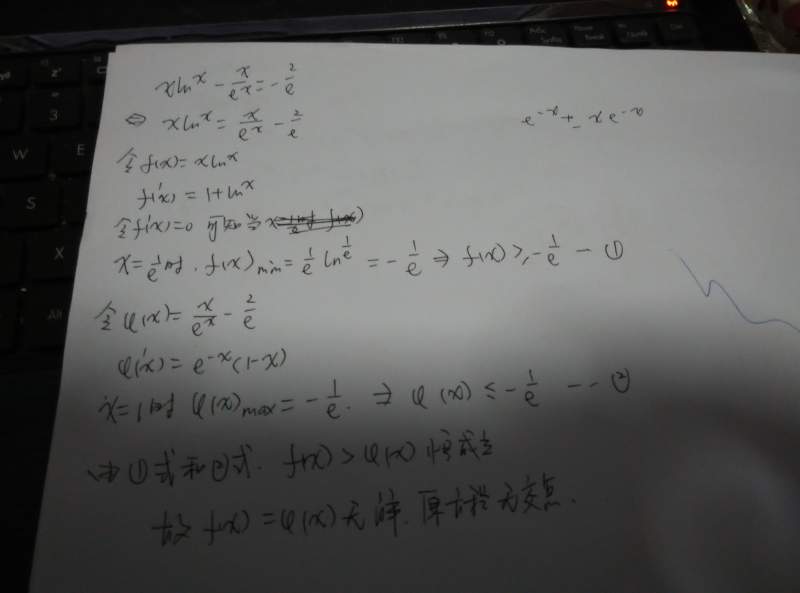 xlnˣ - x/eˣ = -2/e
⇔ xlnˣ = x/eˣ - 2/e
e⁻ˣ + - x e⁻ˣ
令f(x)= xlnˣ
f'(x) = 1+lnˣ
令f'(x)=0 可知当x
x=1/e时. f(x)min= 1/e ln^{1/e} = -1/e ⇒ f(x)≥-1/e — ①
令φ(x)= x/eˣ - 2/e
φ'(x) = e⁻ˣ(1-x)
x=1时 φ(x)max = -1/e. ⇒ φ(x) ≤ -1/e -- ②
由①式和②式. f(x)>φ(x) 恒成立
故f(x)=φ(x)无解. 原方程无交点.
W
E
S
X
Alt
3